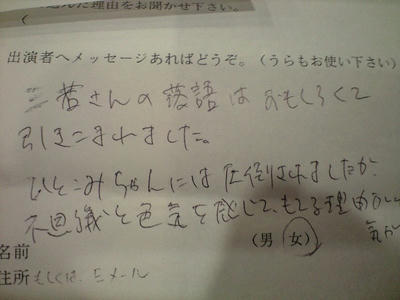 込んだ理由をお聞かせ下さい。
(
出演者へメッセージあればどうぞ。(うらもお使い下さい)
三若さんの落語はおもしろくて
引きこまれました。
ひとみちゃんには圧倒されましたが、
不思議と色気を感じて、もてる理由が
気が
(男 女)
名前
住所もしくは、Eメール